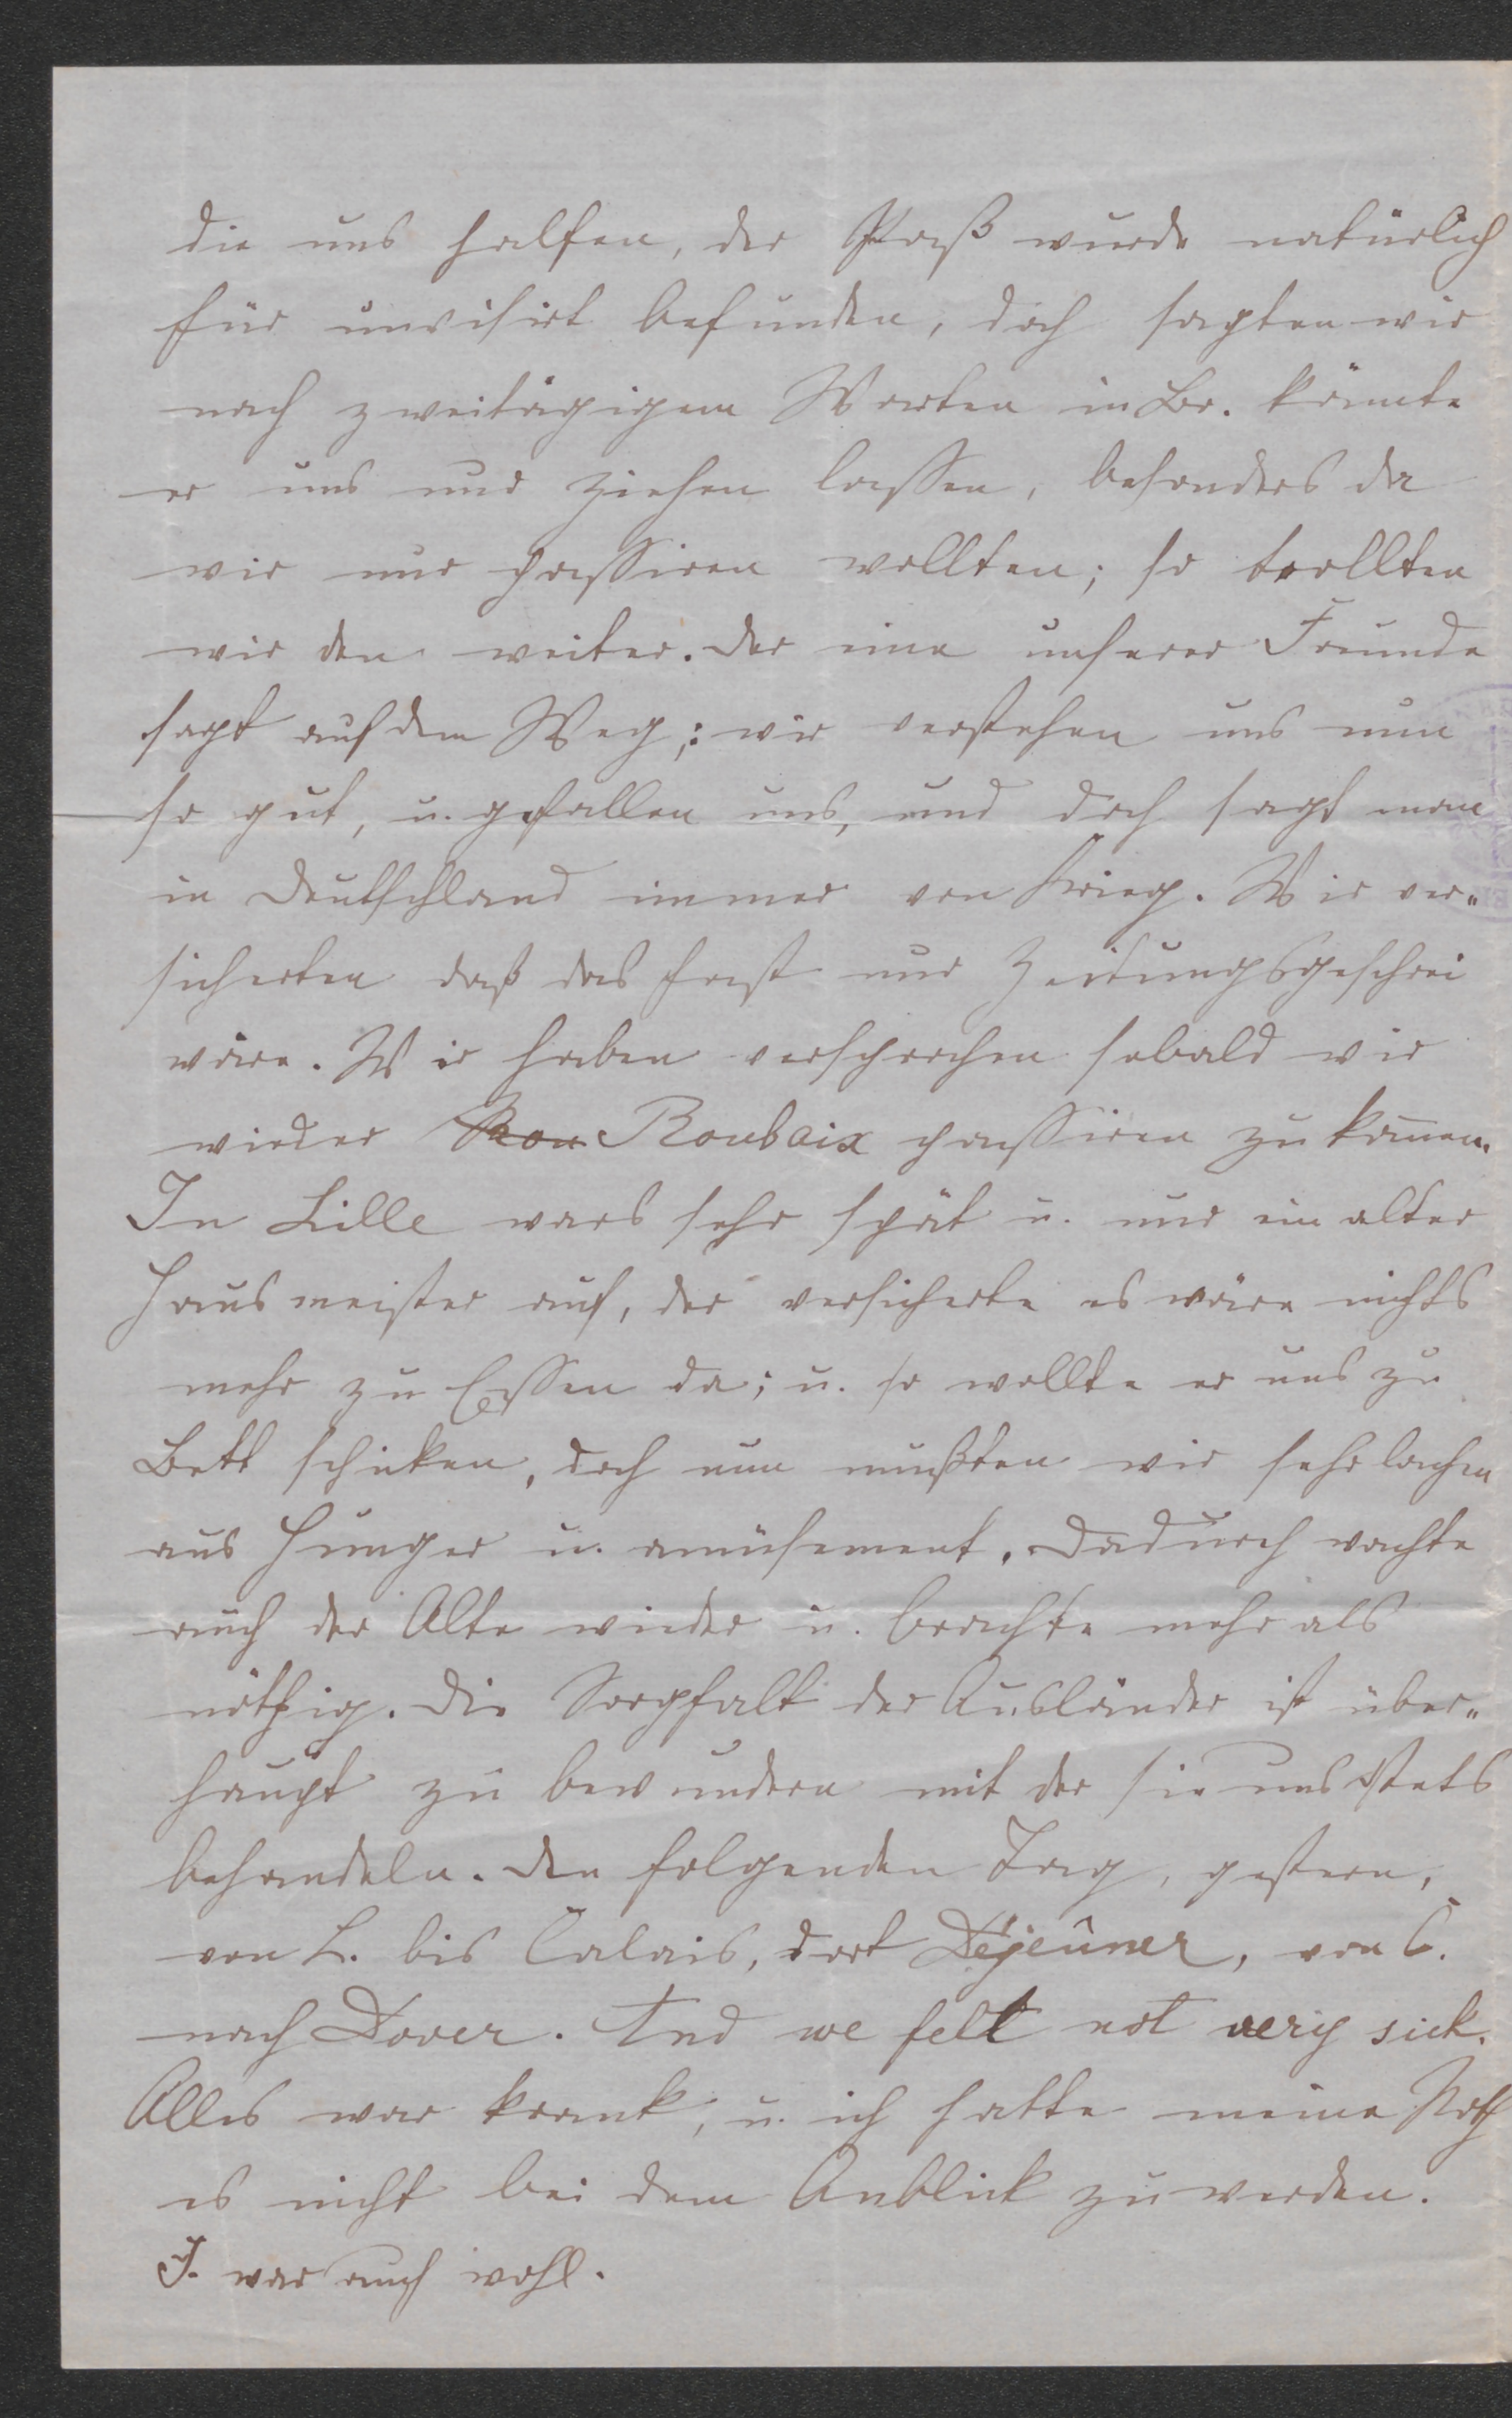 die uns halfen, der Paß wurde natürlich
für unvisirt befunden, doch sagten wir
nach zweitägigem Warten in Br. könnte
er uns nur ziehen lassen, besonders da
wir nur passiren wollten; so trollten
wir den weiter. Der eine unserer Freunde
sagt auf dem Weg,: wir verstehen uns nun
so gut, u. gefallen uns, und doch sagt man
in Deutschland immer von Krieg. Wir ver„
sicherten daß das fast nur Zeitungsgeschrei
wäre. Wir haben versprochen sobald wir
wieder Rou Roubaix passiren zu kom̄en.
In Lille wars sehr spät u. nur ein alter
Hausmeister auf, der versicherte es wäre nichts
mehr zu Essen da; u. so wollte er uns zu
Bett schicken, doch nun mußten wir sehr lachen
aus Hunger u. amüsement. Dadurch wachte
auch der Alte wieder u. brachte mehr als
nöthig. Die Sorgfalt der Ausländer ist über„
haupt zu bewundern mit der sie uns stets
behandeln. Den folgenden Tag, gestern,
von L. bis Calais, dort Déjeûner, von C.
nach Dover. And we felt not very sick.
Alles war krank, u. ich hatte meine Noth
es nicht bei dem Anblick zu werden.
J. war auch wohl.